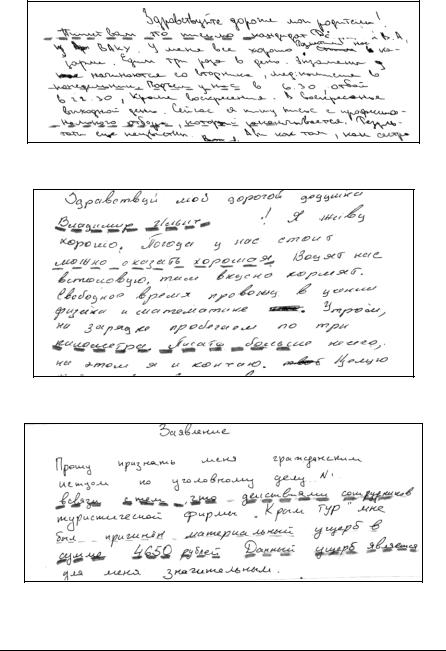 Здравствуйте дороги мои родители!
Пишет вам это письмо кандидат В.А.
у ВАку. У меня все хорошо. нас в ка-
зарме. Едим три раза в день. Экзамены у
начинаются со вторника, медкомиссия в
понедельник. у нас в 6.30, отбой
в 22.30, кроме воскресения. В воскресенье
выходной день. Сейчас я пишу тест с професио-
нального отбора, который заканчивается. Резуль-
таты еще неизвестны. Вы как там, как сестра
Здравствуй мой дорогой дедушка
Владимир Ильич ! Я живу
хорошо. Погода у нас стоит
можно сказать хорошая. Водят нас
встоловую, там вкусно кормят.
Свободное время провожу в чтении
физики и математике. Утром,
на зарядке пробегаем по три
километра. Писать больше нечего,
на этом я и кончаю. Целую
Заявление
Прошу признать меня гражданским
истцом по уголовному делу N:
всвязи с тем, что действиями сотрудников
туристической фирмы „Крым Тур" мне
был причинён материальный ущерб в
сумме 4650 рублей Данный ущерб является
для меня значительным.